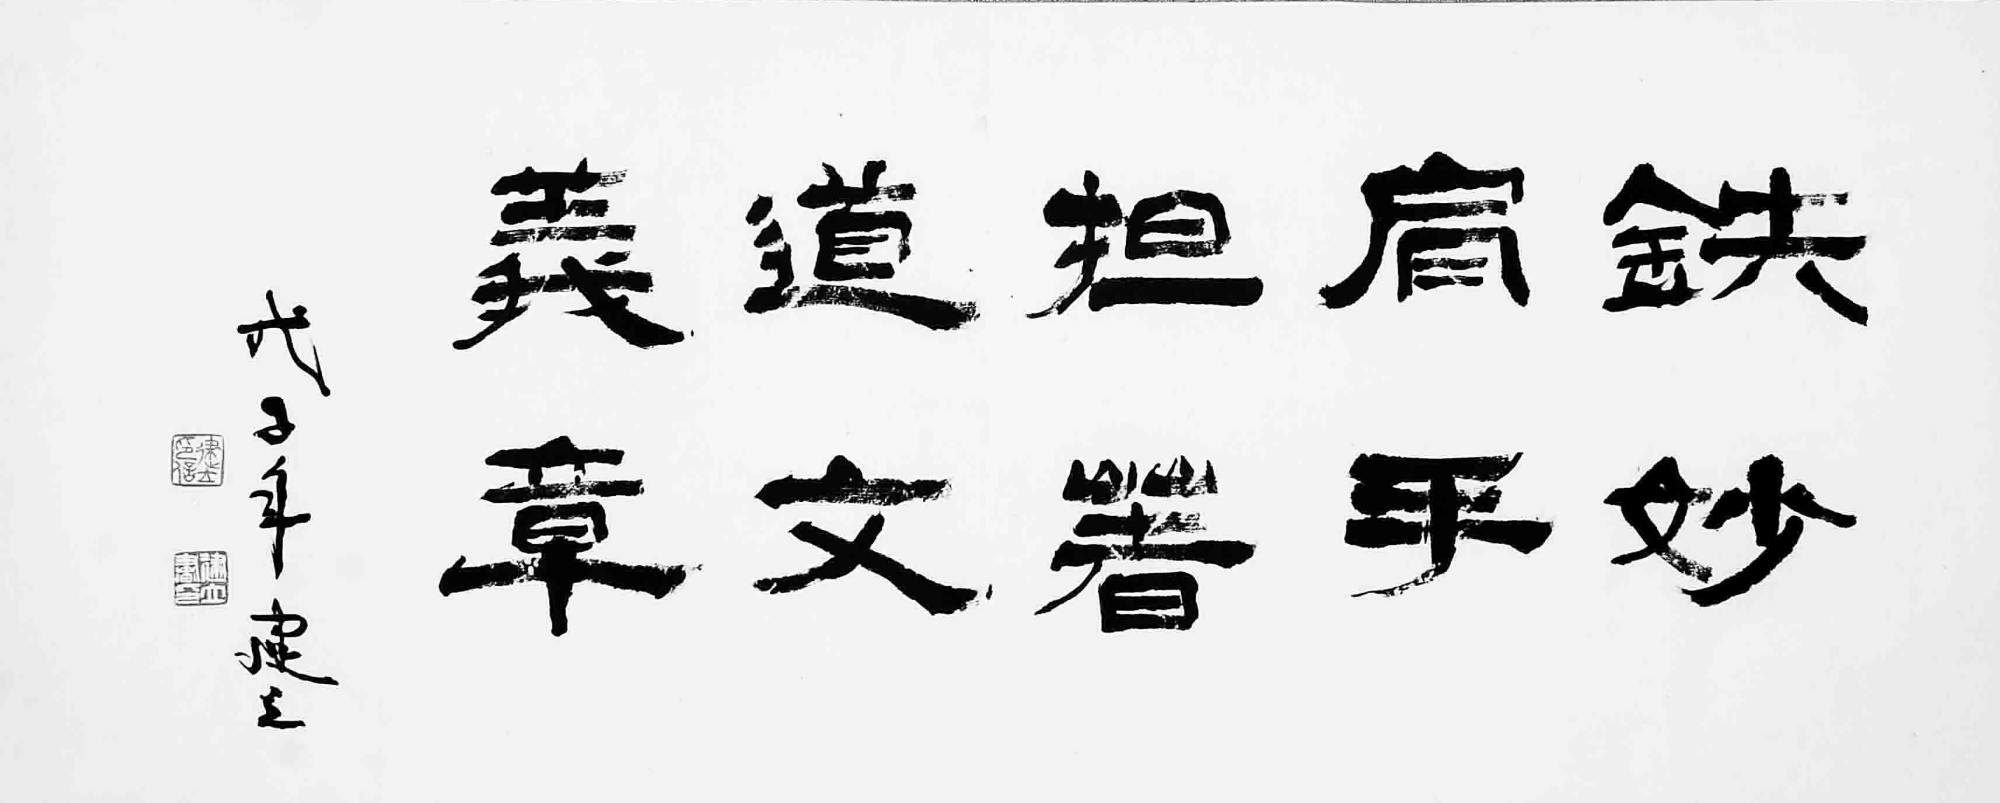 鉄肩担道義
妙手著文章
戊子年